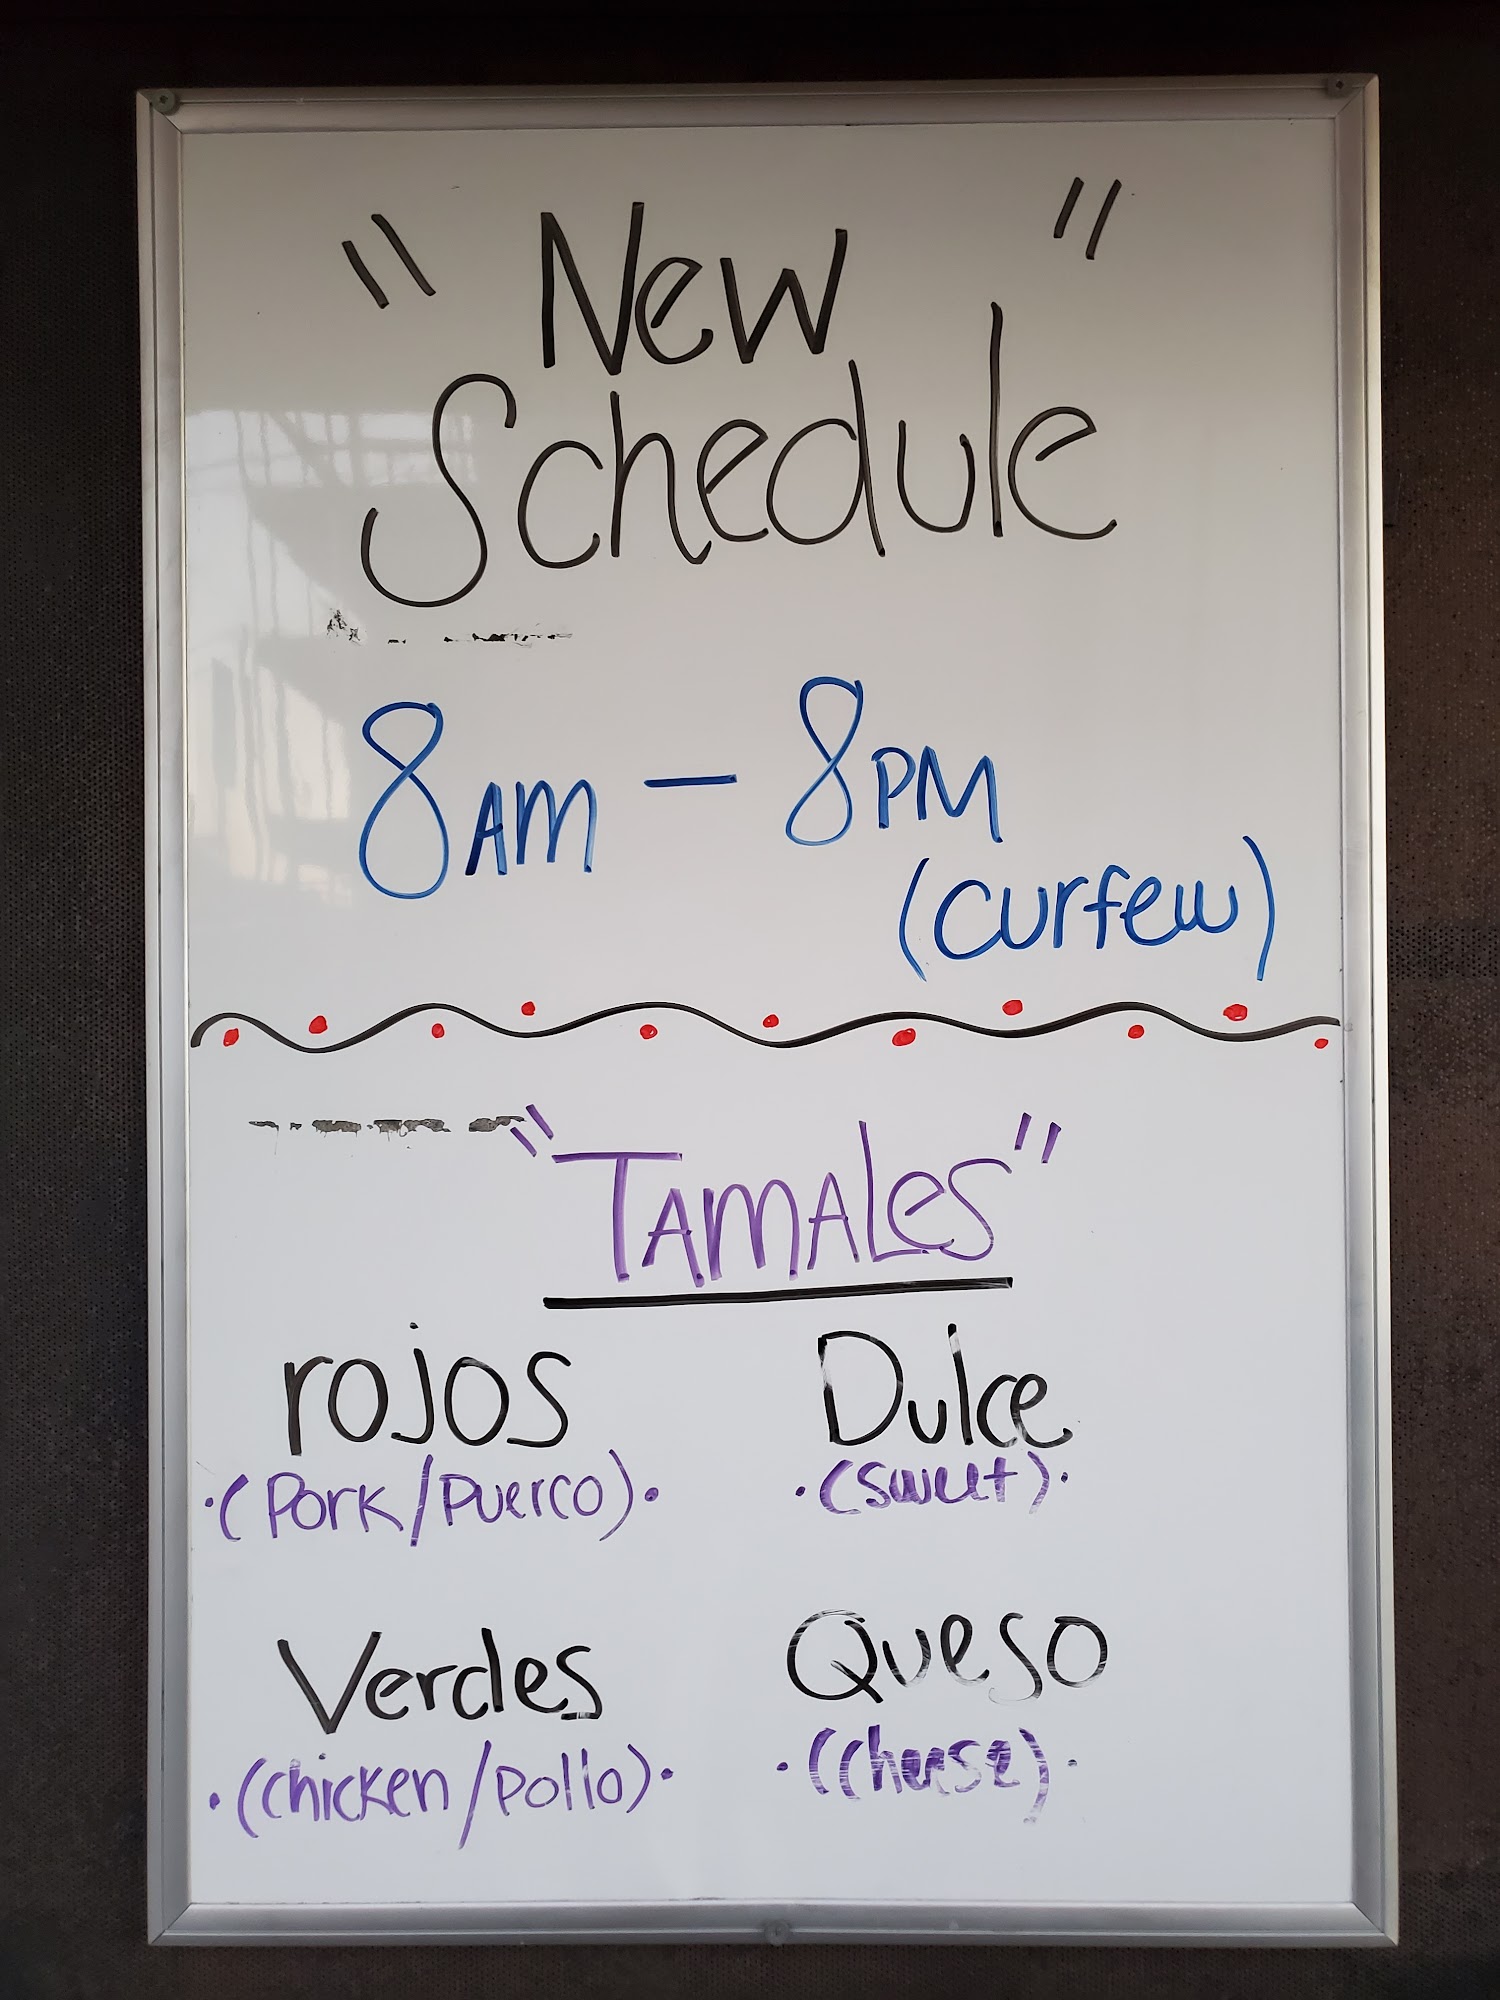 "New"
Schedule
8AM - 8PM
(curfew)
"TAMALes"
rojos
·(Pork/Puerco)·
Dulce
·(sweet)·
Verdes
·(chicken/pollo)·
Queso
·(cheese)·